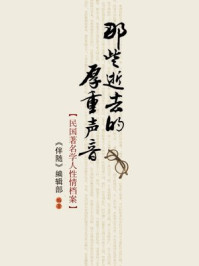 那些逝去的
厚重声音
【民国著名学人性情档案】
《伴随》编辑部
编著